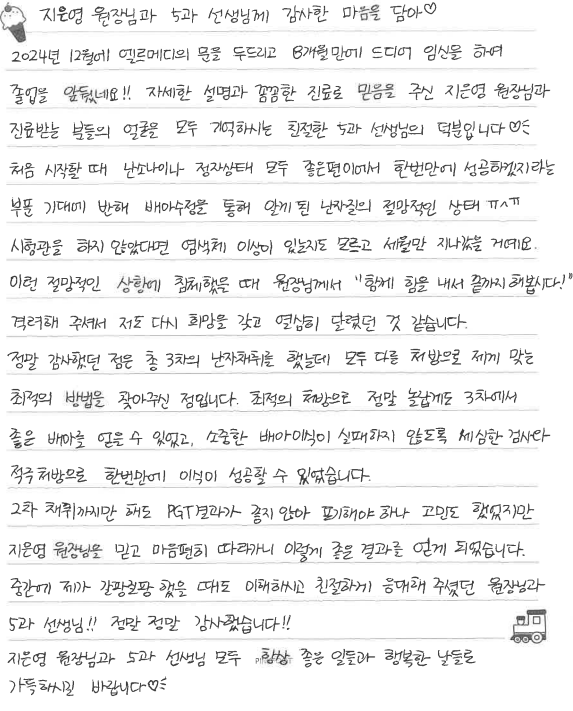 지은영 원장님과 5과 선생님께 감사한 마음을 담아♡
2024년 12월에 엘르메디의 문을 두드리고 8개월만에 드디어 임신을 하여
졸업을 앞뒀네요!! 자세한 설명과 꼼꼼한 진료로 믿음을 주신 지은영 원장님과
진료받는 분들의 얼굴을 모두 기억하시는 친절한 5과 선생님의 덕분입니다♡
처음 시작할 때 난소나이나 정자상태 모두 좋은편이어서 한번만에 성공하겠지라는
부푼 기대에 반해 배아수정을 통해 알게 된 난자질의 절망적인 상태 ㅠㅅㅠ
시험관을 하지 않았다면 염색체 이상이 있는지도 모르고 세월만 지나갔을 거예요.
이런 절망적인 상황에 침체했을 때 원장님께서 "함께 힘을 내서 끝까지 해봅시다!"
격려해 주셔서 저도 다시 희망을 갖고 열심히 달렸던 것 같습니다.
정말 감사했던 점은 총 3차의 난자채취를 했는데 모두 다른 처방으로 제게 맞는
최적의 방법을 찾아주신 점입니다. 최적의 처방으로 정말 놀랍게도 3차에서
좋은 배아를 얻을 수 있었고, 소중한 배아이식이 실패하지 않도록 세심한 검사와
적절 처방으로 한번만에 이식이 성공할 수 있었습니다.
2차 채취까지만 해도 PGT결과가 좋지 않아 포기해야 하나 고민도 했었지만
지은영 원장님을 믿고 마음편히 따라가니 이렇게 좋은 결과를 얻게 되었습니다.
중간에 제가 갈팡질팡 했을 때도 이해하시고 친절하게 응대해 주셨던 원장님과
5과 선생님!! 정말 정말 감사했습니다!!
지은영 원장님과 5과 선생님 모두 항상 좋은 일들과 행복한 날들로
가득하시길 바랍니다♡